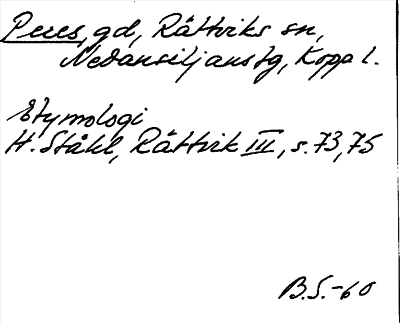 Peres, gd, Rättviks sn,
Nedansiljans tg, Kopp l.
Etymologi
H. Ståhl, Rättvik III, s. 73, 75
B.S.-60